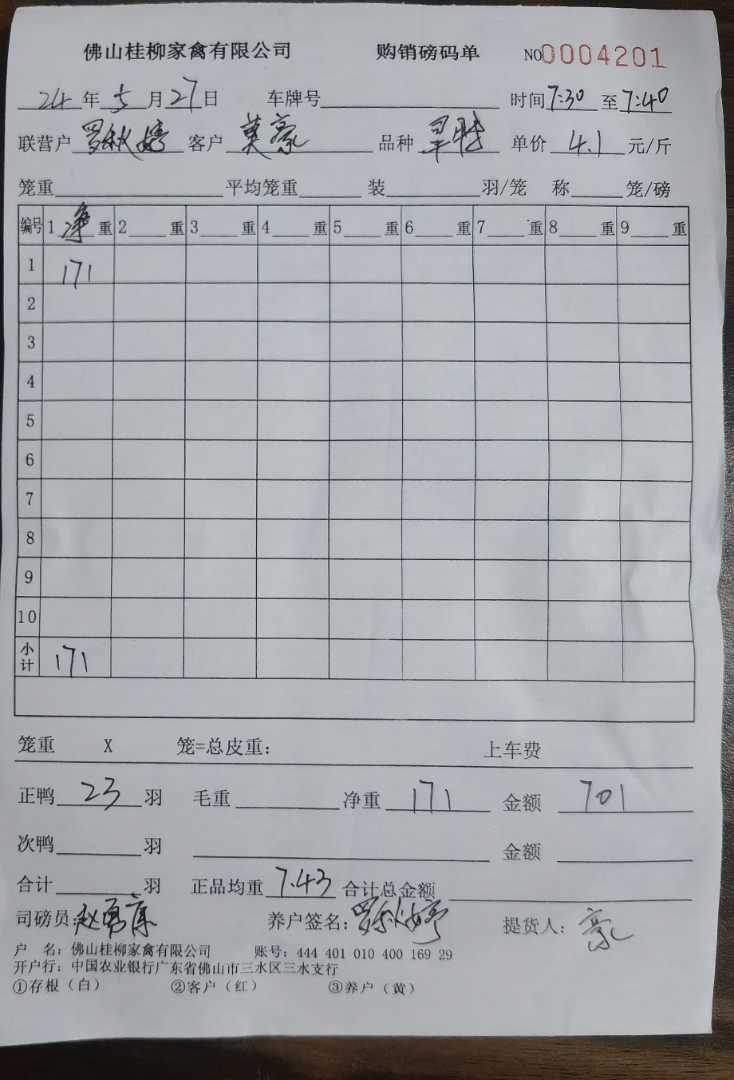 佛山桂柳家禽有限公司 购销磅码单 NO0004201
24年5月27日 车牌号 时间7:30至7:40
联营户 客户 品种 单价 4.1 元/斤
笼重 平均笼重 装 羽/笼 称 笼/磅
编号 1净重 2重 3重 4重 5重 6重 7重 8重 9重
1 171
2
3
4
5
6
7
8
9
10
小计 171
笼重 X 笼=总皮重： 上车费
正鸭 23 羽 毛重 净重 171 金额 701
次鸭 羽 金额
合计 羽 正品均重 7.43 合计总金额
司磅员： 养户签名： 提货人：豪
户 名：佛山桂柳家禽有限公司 账号：444 401 010 400 169 29
开户行：中国农业银行广东省佛山市三水区三水支行
①存根（白） ②客户（红） ③养户（黄）